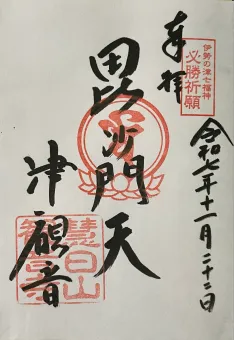 奉拝
伊勢の津七福神
必勝祈願
令和七年十一月二十二日
毘沙門天
津観音